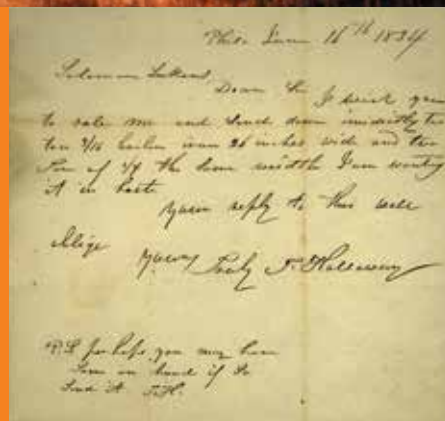 Phila June 16th 1834
Solomon Lukens
Dear Sir I want you
to role me and send down imidetly
ton 3/16 boiler iron 26 inches wide and
of 1/4 the same width I am wanting
it in haste
your reply to this will
oblige
yours Truly T. Holloway
P.S perhaps you may have
some on hand if so
send it T.H.